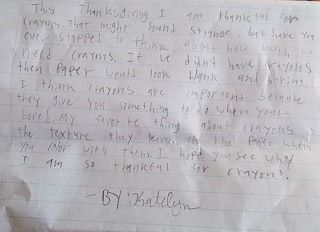 This Thanksgiving I am thankful for
crayons. That might sound strange but have you
ever stopped to think about how much we
need crayons. If we didn't have crayons
then paper would look blank and boring.
I think crayons are important because
they give you something to do when your
bored. My favorite thing about crayons is
the texture they leave on the paper when
you color with them. I hope you see why
I am so thankful for crayons.
-BY: Katelyn